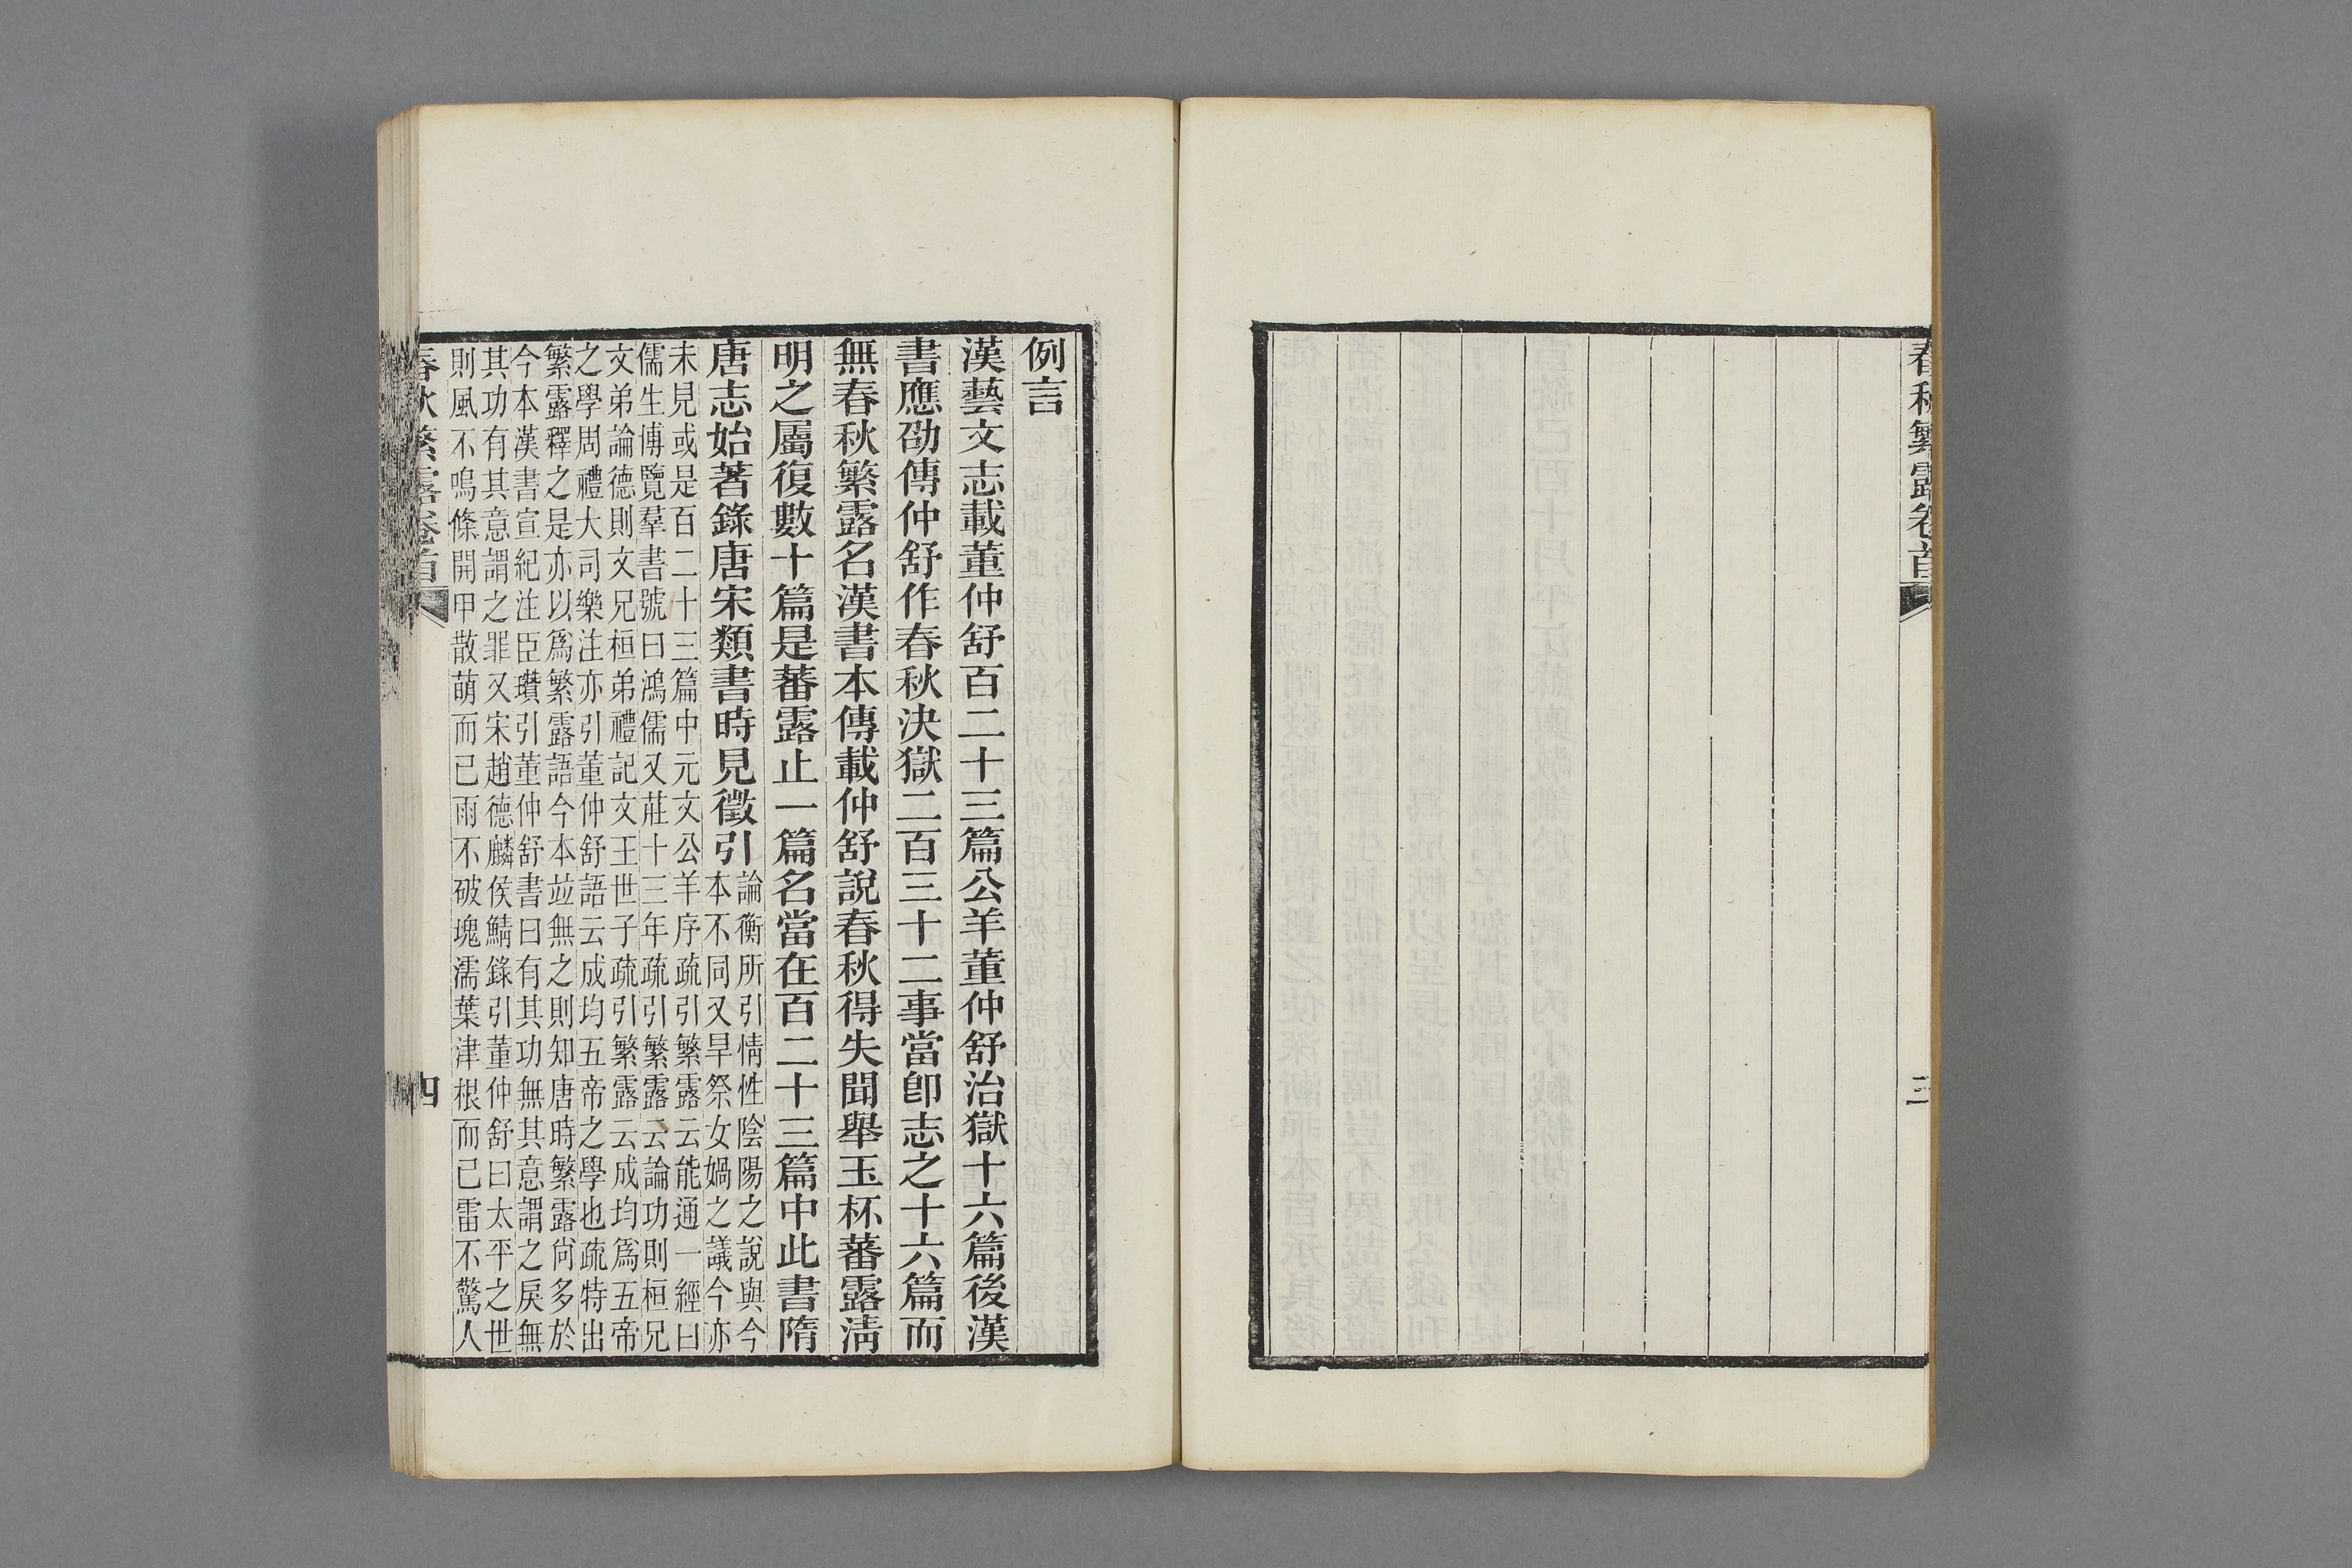 春秋繁露卷首
三
例言
漢藝文志載董仲舒百二十三篇公羊董仲舒治獄十六篇後漢
書應劭傳仲舒作春秋決獄二百三十二事當卽志之十六篇而
無春秋繁露名漢書本傳載仲舒說春秋得失聞舉玉杯蕃露淸
明之屬復數十篇是蕃露止一篇名當在百二十三篇中此書隋
唐志始著錄唐宋類書時見徵引
論衡所引情性陰陽之說與今
本不同又旱祭女媧之議今亦
未見或是百二十三篇中元文公羊序疏引繁露云能通一經曰
儒生博覽羣書號曰鴻儒又莊十三年疏引繁露云論功則桓兄
文弟論德則文兄桓弟禮記文王世子疏引繁露云成均爲五帝
之學周禮大司樂注亦引董仲舒語云成均五帝之學也疏特出
繁露釋之是亦以爲繁露語今本並無之則知唐時繁露尙多於
今本漢書宣紀注臣瓚引董仲舒書曰有其功無其意謂之戾無
其功有其意謂之罪又宋趙德麟侯鯖錄引董仲舒曰太平之世
則風不鳴條開甲散萌而已雨不破塊濡葉津根而已雷不驚人
春秋繁露卷首
四